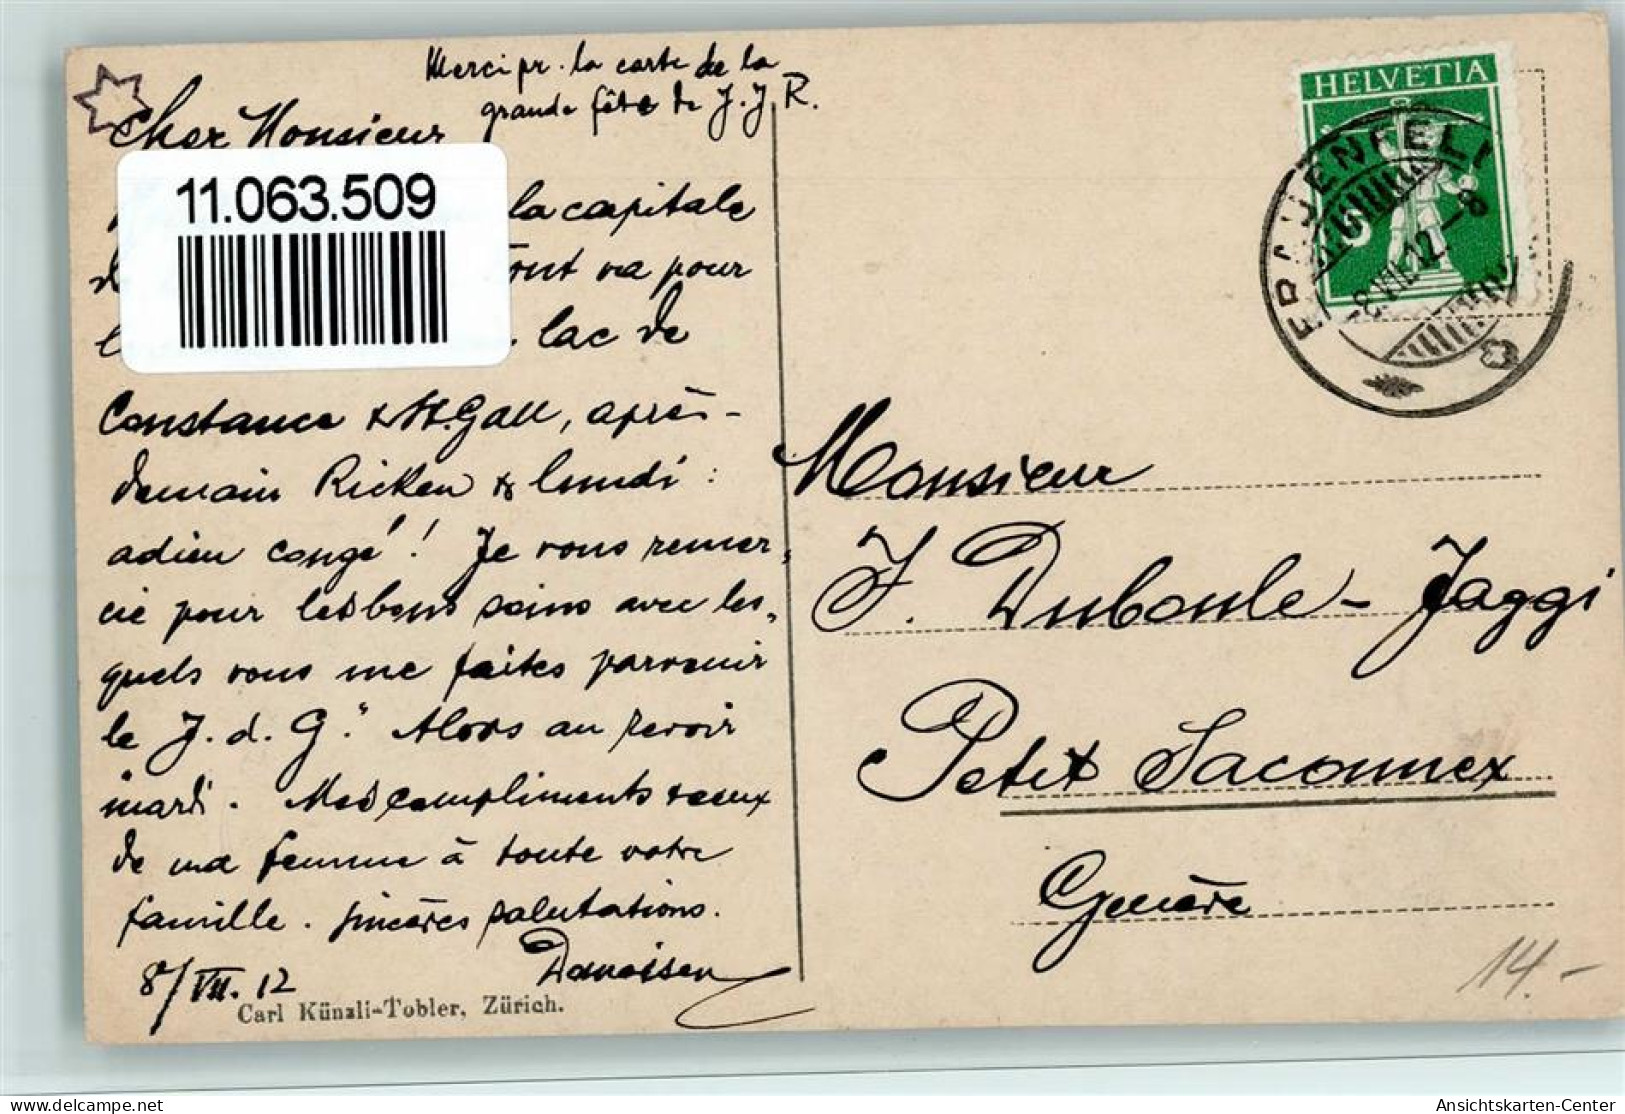 Merci pr. la carte de la
grande fête de J. J. R.
Cher Monsieur
11.063.509
la capitale
va pour
lac de
Constance & St. Gall, après-
demain Ricken & lundi :
adieu congé ! Je vous remer-
cie pour les bons soins avec les-
quels vous me faites parvenir
le "J. d. G." Alors au revoir
mardi. Mes compliments & ceux
de ma femme à toute votre
famille. Sincères salutations.
8/VII. 12
Carl Künzli-Tobler, Zürich.
HELVETIA
5
FRAUENFELD
-8.VII.12.-8
Monsieur
J. Duboule-Jaggi
Petit Saconnex
Genève
14.-
delcampe.net
Ansichtskarten-Center